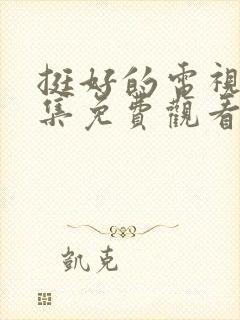 挺好的電視
集免費觀看
凱克